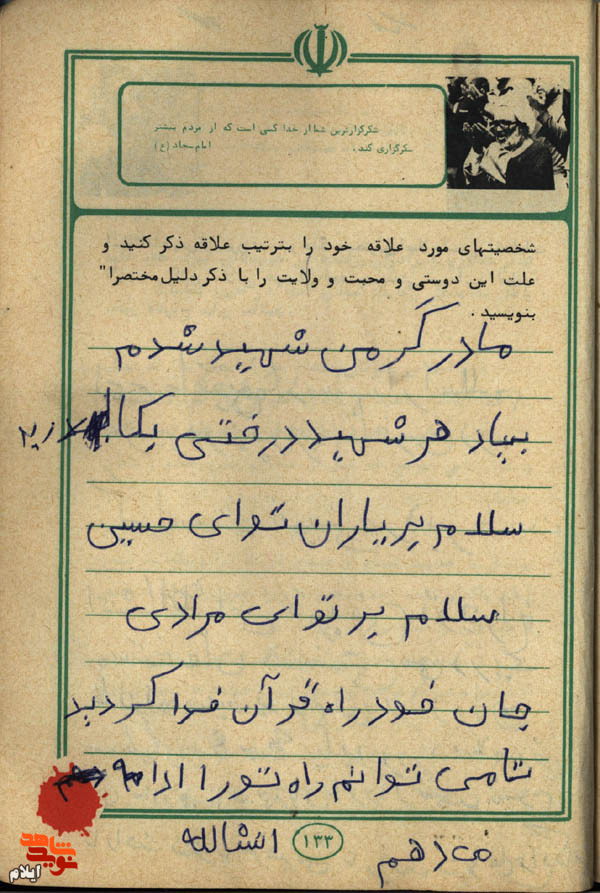 شکرگزارترین شما از خدا کسی است که از مردم بیشتر
شکرگزاری کند. امام سجاد (ع)
شخصیتهای مورد علاقه خود را بترتیب علاقه ذکر کنید و
علت این دوستی و محبت و ولایت را با ذکر دلیل مختصرا"
بنویسید.
مادر گر من شهید شدم
بیاد هر شهید درختی بکا
سلام بر یاران توای حسین
سلام بر توای مرادی
جان خود راه قرآن فدا کردید
تا می توانم راه تو را ادامه
می دهم
انشالله
۱۳۳
نوید شاهد
ایلام